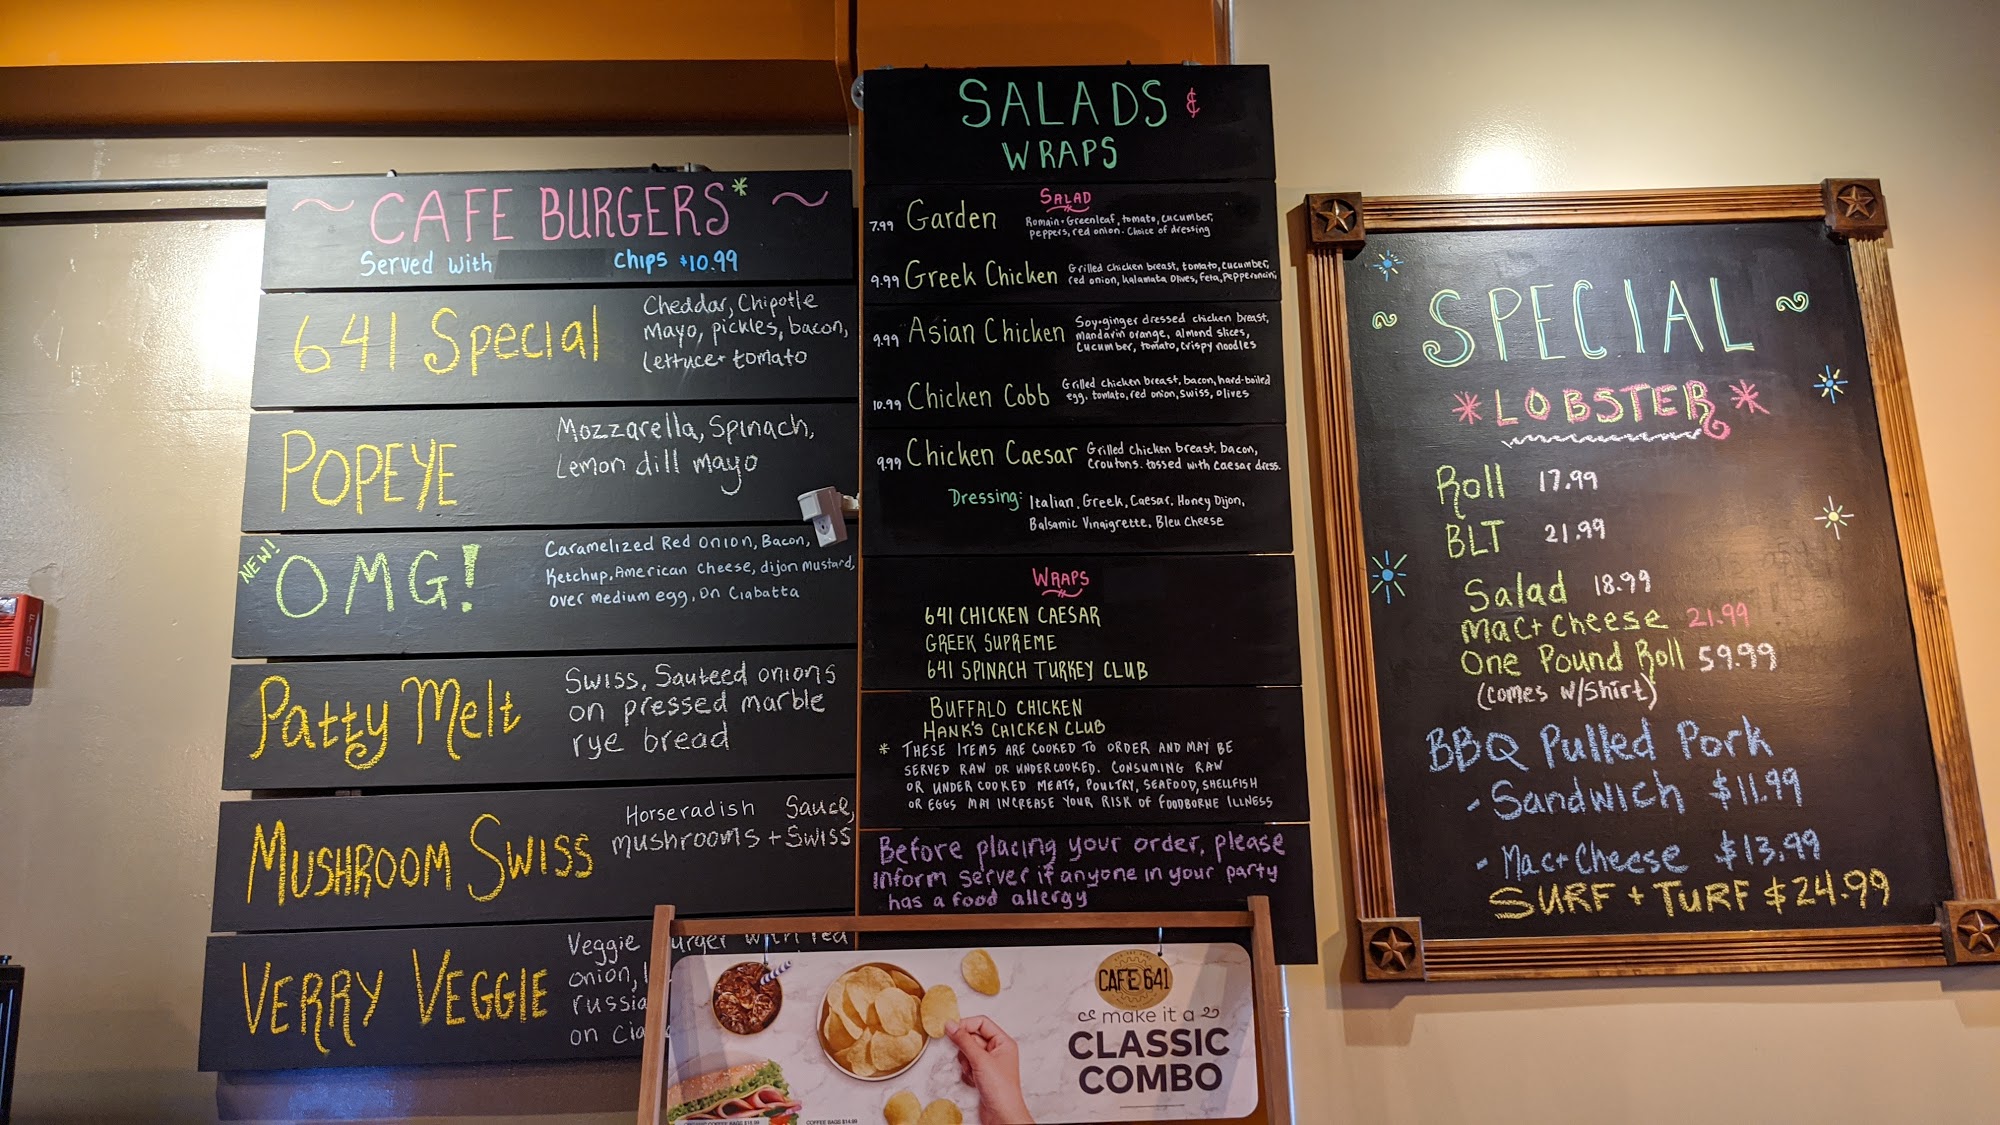 CAFE BURGERS*
Served with chips $10.99
641 Special
Cheddar, Chipotle
Mayo, pickles, bacon,
lettuce + tomato
POPEYE
Mozzarella, Spinach,
Lemon dill mayo
NEW!
OMG!
Caramelized Red Onion, Bacon,
Ketchup, American Cheese, dijon mustard,
over medium egg, On Ciabatta
Patty Melt
Swiss, Sauteed onions
on pressed marble
rye bread
MUSHROOM SWISS
Horseradish Sauce,
mushrooms + Swiss
VERRY VEGGIE
Veggie Burger with red
onion,
russia
on Cia
SALADS &
WRAPS
SALAD
7.99 Garden
Romain + Greenleaf, tomato, cucumber,
peppers, red onion. Choice of dressing
9.99 Greek Chicken
Grilled chicken breast, tomato, cucumber,
red onion, kalamata olives, feta, pepperoncini
9.99 Asian Chicken
Soy-ginger dressed chicken breast,
mandarin orange, almond slices,
cucumber, tomato, crispy noodles
10.99 Chicken Cobb
Grilled chicken breast, bacon, hard-boiled
egg, tomato, red onion, swiss, olives
9.99 Chicken Caesar
Grilled chicken breast, bacon,
croutons. tossed with caesar dress.
Dressing: Italian, Greek, Caesar, Honey Dijon,
Balsamic Vinaigrette, Bleu Cheese
WRAPS
641 CHICKEN CAESAR
GREEK SUPREME
641 SPINACH TURKEY CLUB
BUFFALO CHICKEN
HANK'S CHICKEN CLUB
* THESE ITEMS ARE COOKED TO ORDER AND MAY BE
SERVED RAW OR UNDERCOOKED. CONSUMING RAW
OR UNDER COOKED MEATS, POULTRY, SEAFOOD, SHELLFISH
OR EGGS MAY INCREASE YOUR RISK OF FOODBORNE ILLNESS
Before placing your order, please
inform server if anyone in your party
has a food allergy
SPECIAL
*LOBSTER*
Roll 17.99
BLT 21.99
Salad 18.99
Mac + Cheese 21.99
One Pound Roll 59.99
(comes w/shirt)
BBQ Pulled Pork
- Sandwich $11.99
- Mac + Cheese $13.99
SURF + TURF $24.99
CAFE 641
make it a
CLASSIC
COMBO
COFFEE BAGS $14.99
FIRE